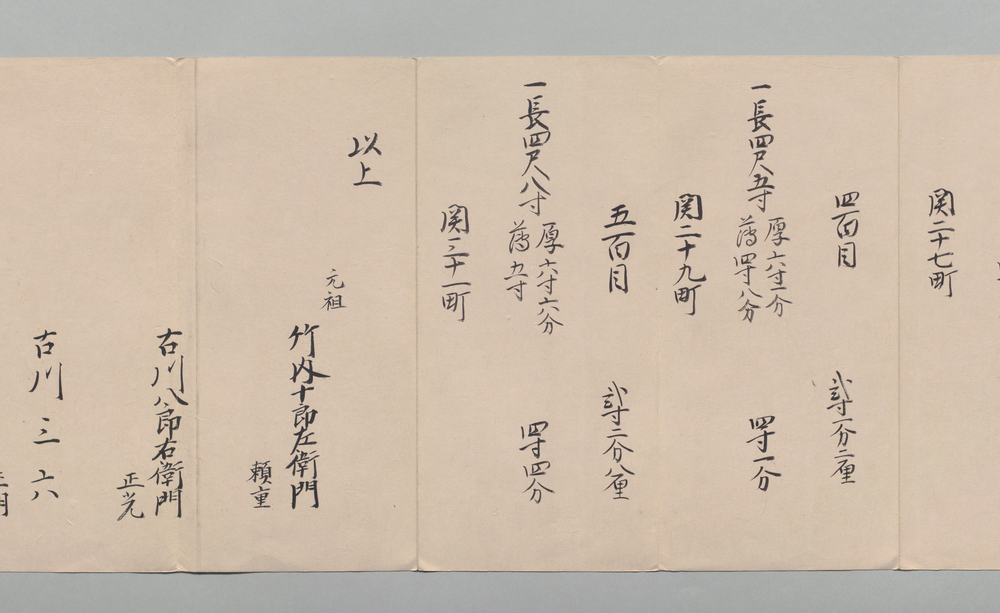 関二十七町
四百目
弐寸一分二厘
一長四尺五寸
厚六寸一分
薄四寸八分
四寸一分
関二十九町
五百目
弐寸二分八厘
一長四尺八寸
厚六寸六分
薄五寸
四寸四分
関三十一町
以上
元祖
竹内十郎左衛門
頼重
古川八郎右衛門
正光
古川三六